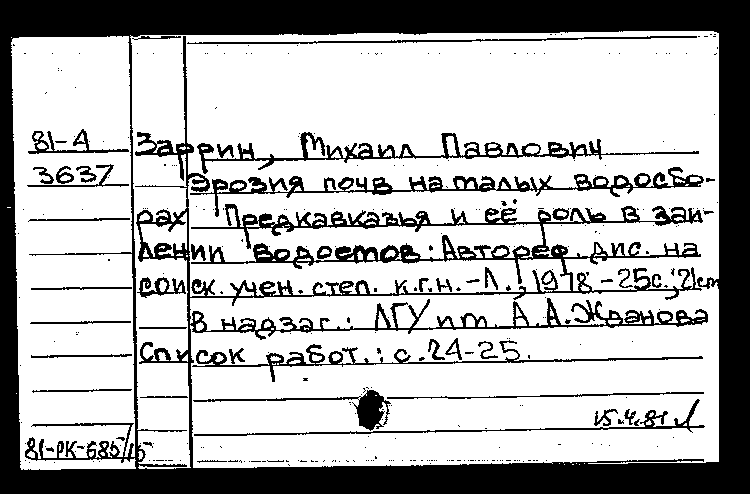 81-А
3637
Заррин, Михаил Павлович
Эрозия почв на малых водосбо-
рах Предкавказья и её роль в заи-
лении водоемов: Автореф. дис. на
соиск. учен. степ. к.г.н. -Л., 1978 -25с.; 21см
В надзаг.: ЛГУ им. А.А. Жданова
Список работ.: с. 24-25.
15.4.81
81-РК-685/15